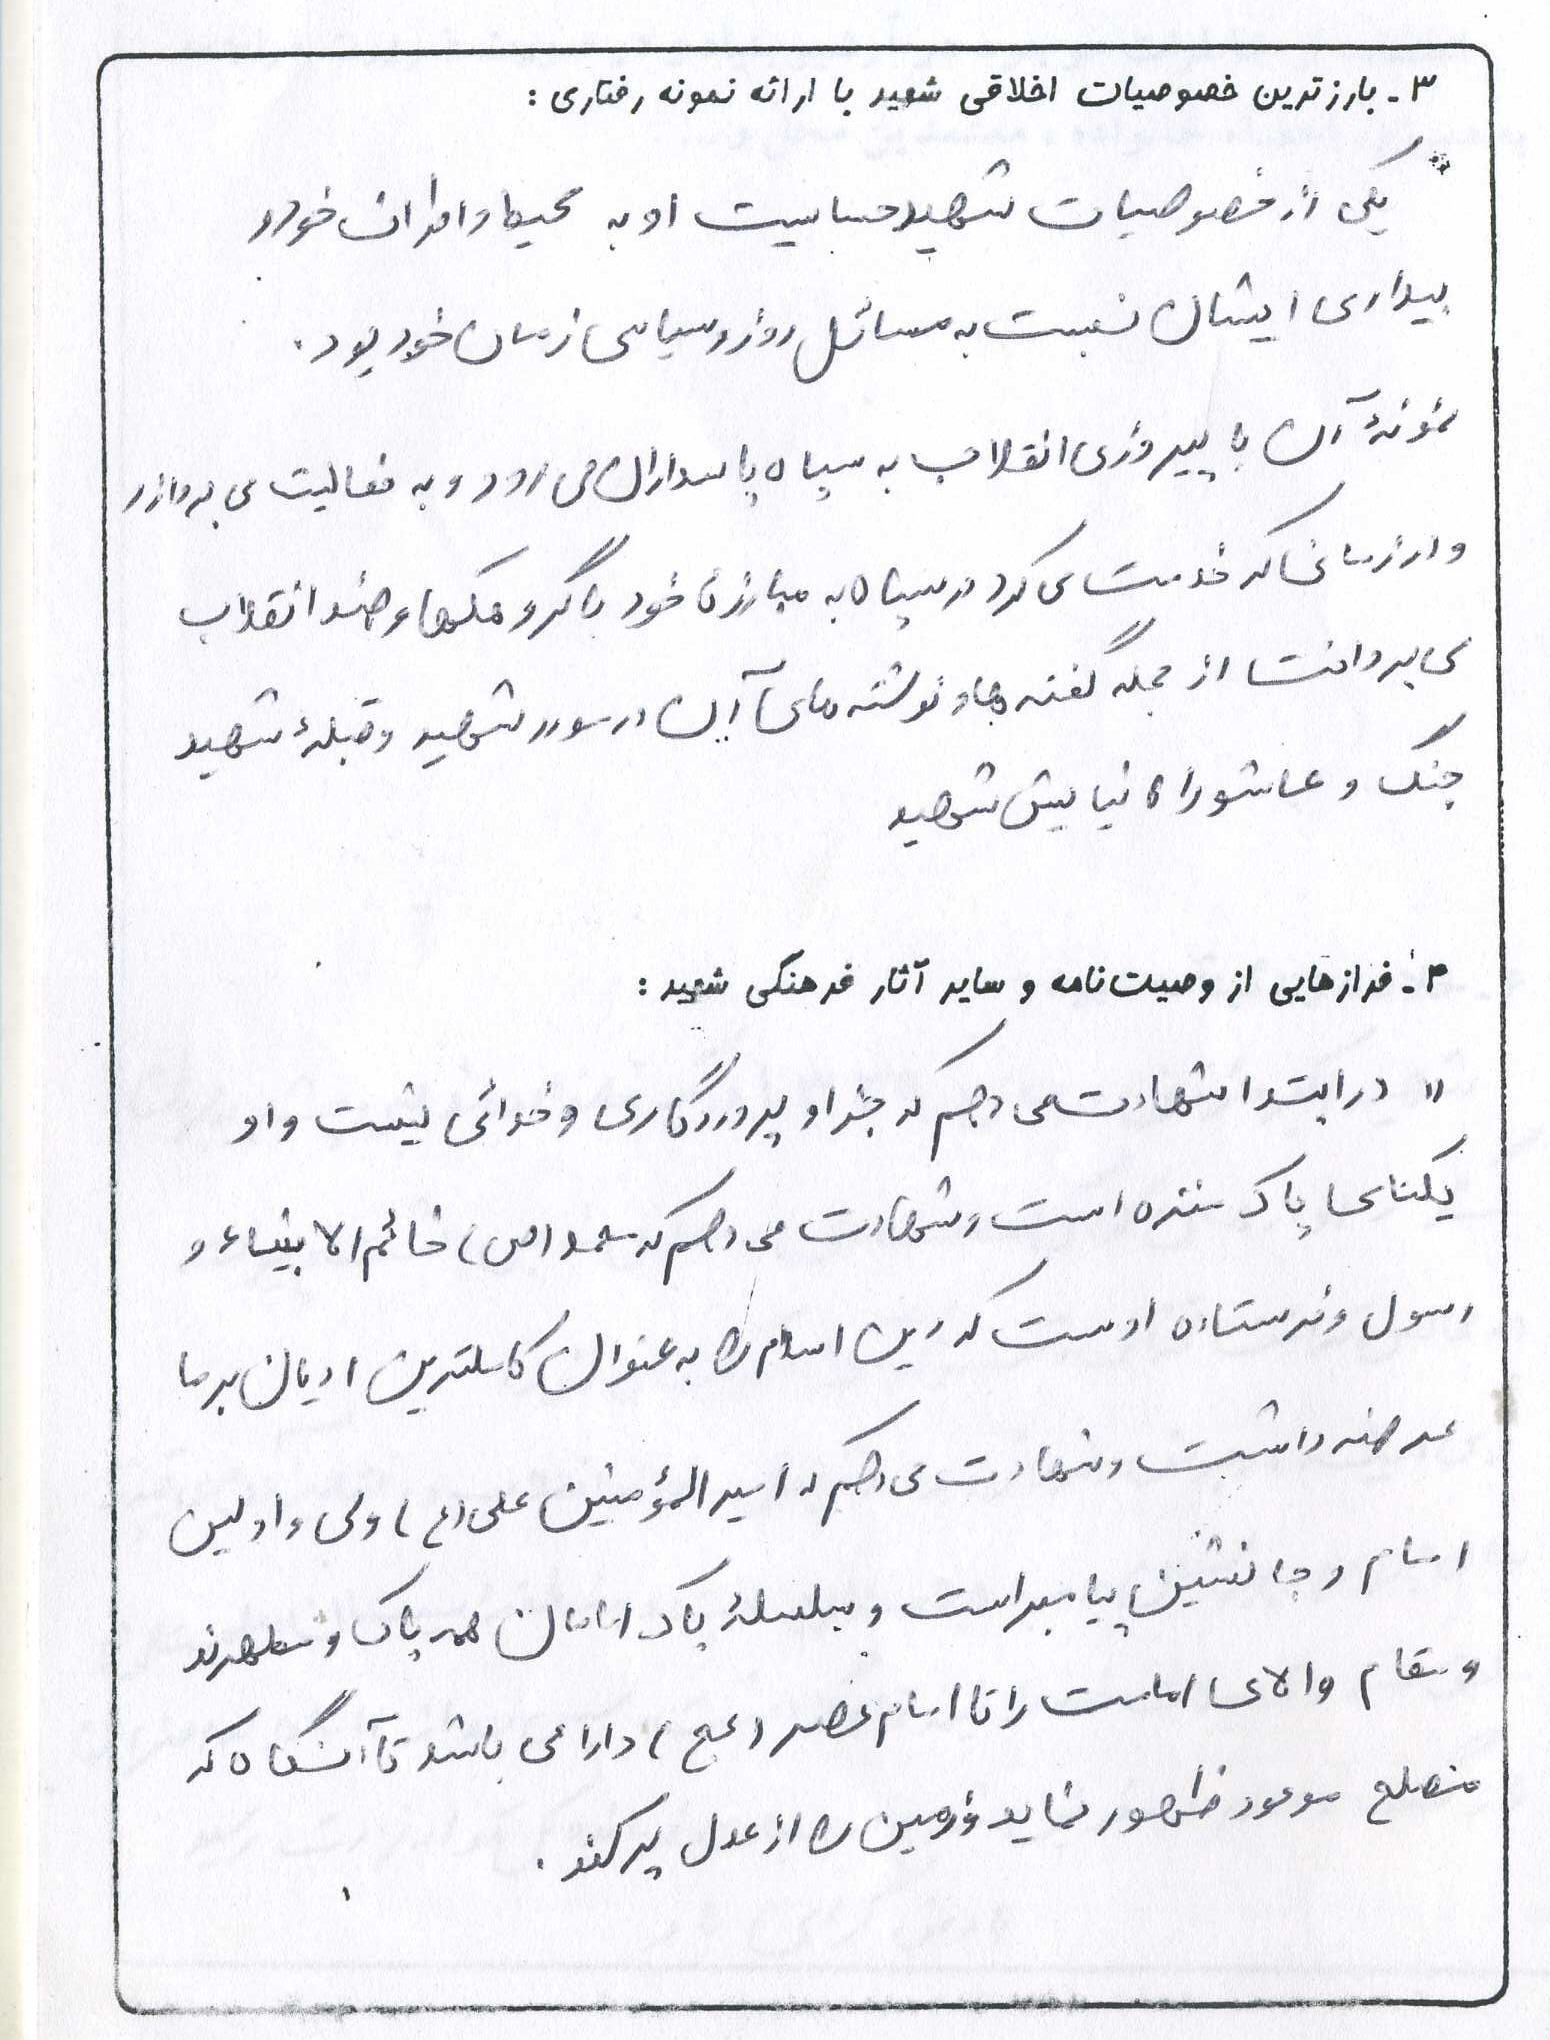 ۳- بارزترین خصوصیات اخلاقی شهید با ارائه نمونه رفتاری :
یکی از خصوصیات شهید حساسیت او به محیط و اطراف خود و
بیداری ایشان نسبت به مسائل روز و سیاسی زمان خود بود.
نمونهٔ آن با پیروزی انقلاب به سپاه پاسداران می رود و به فعالیت می پردازد
و در زمانی که خدمت می کرد در سپاه به مبارزه خود با گروهکها و ضد انقلاب
می پرداخت از جمله گفته ها و نوشته های آن در سوره شهید و قبلهٔ شهید
جنگ و عاشورا نیایش شهید
۴- فرازهایی از وصیت‌نامه و سایر آثار فرهنگی شهید :
" در ابتدا شهادت می دهم که جز او پروردگاری و خدائی نیست و او
یکتای پاک منزه است و شهادت می دهم که محمد (ص) خاتم الانبیاء و
رسول و فرستاده اوست که دین اسلام را به عنوان کاملترین ادیان بر ما
عرضه داشت و شهادت می دهم که امیرالمؤمنین علی (ع) ولی و اولین
امام و جانشین پیامبر است و سلسلهٔ پاک امامان همه پاک و مطهرند
و مقام والای امامت را تا امام عصر (عج) دارا می باشد تا آنگاه که
مصلح موعود ظهور نماید و زمین را از عدل پر کند .